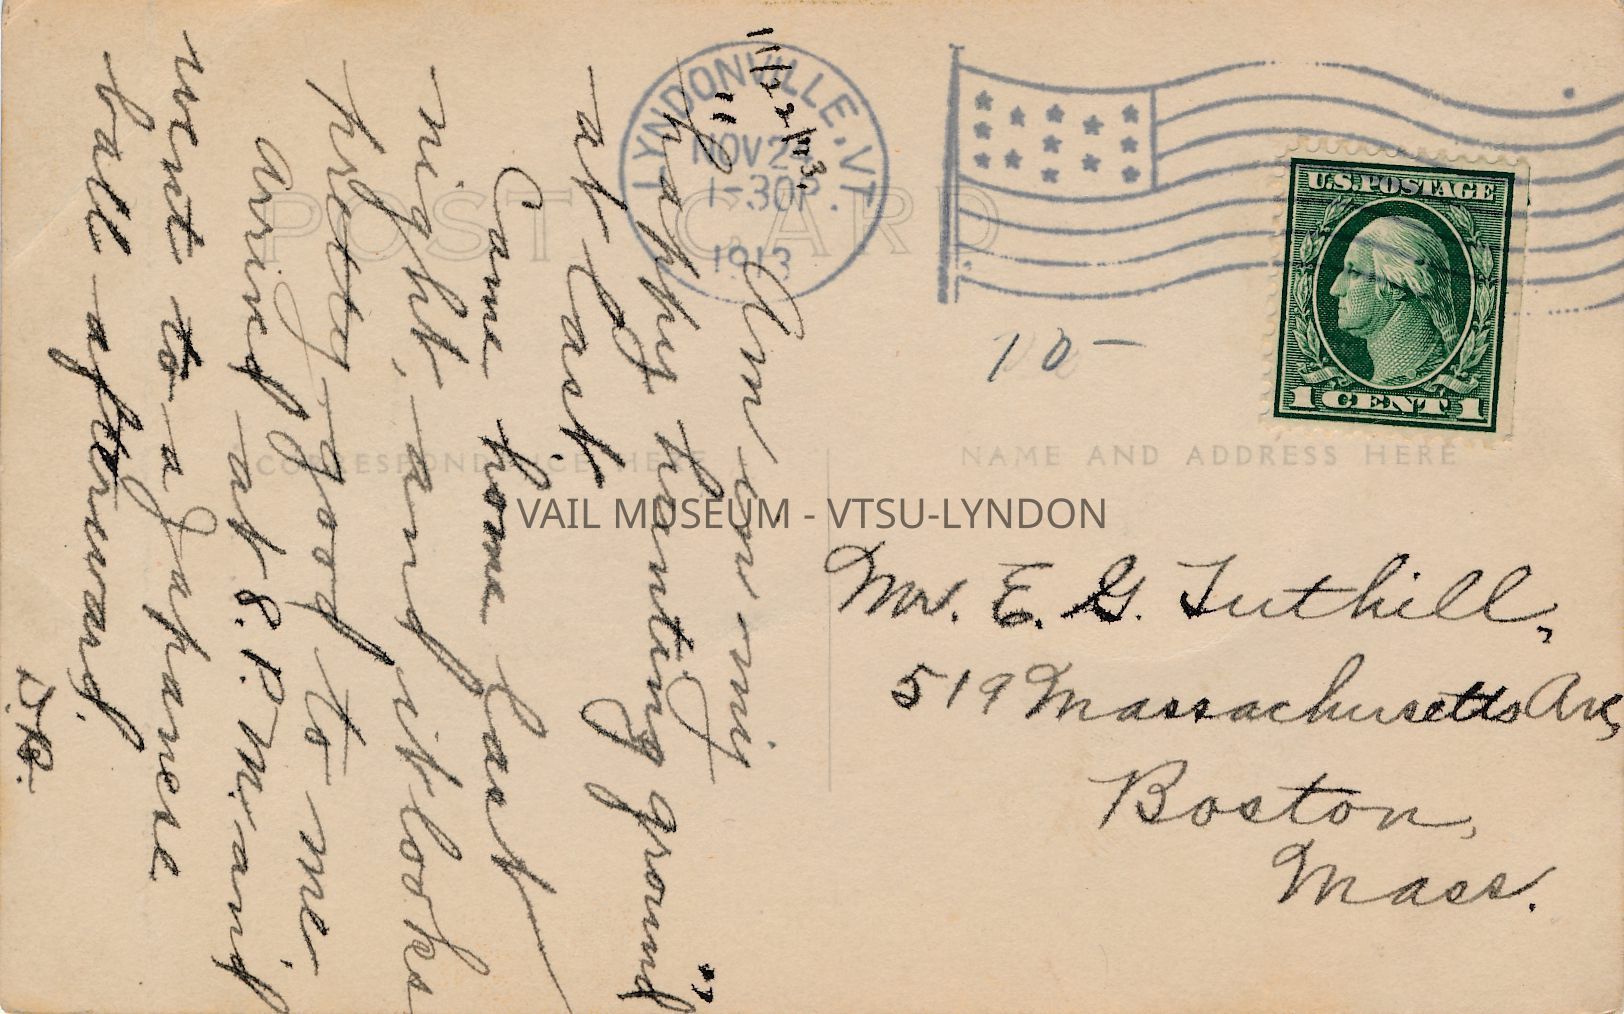 POST CARD
CORRESPONDENCE HERE
NAME AND ADDRESS HERE
LYNDONVILLE, VT.
NOV 22
1-30P.
1913
U.S. POSTAGE
1 CENT 1
10-
11/22/13.
"Am on my
happy hunting ground"
at last.
Came home last
night, and it looks
pretty good to me.
Arrived at 8. P. M. and
went to a Japanese
ball afterward.
D.B.
Mr. E. G. Tuthill,
519 Massachusetts Ave,
Boston,
Mass.
VAIL MUSEUM - VTSU-LYNDON